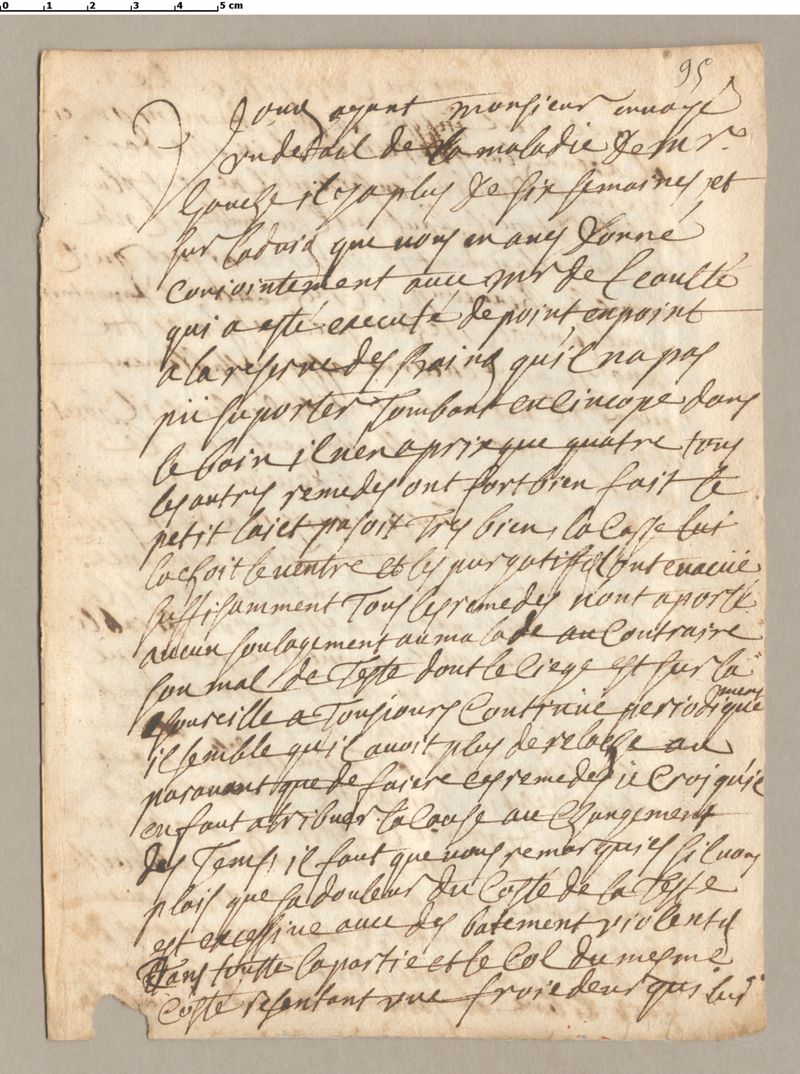 0 1 2 3 4 5 cm
95
Vous ayant monsieur envoyé
un detail de la maladie de mr.
il y a plus de six semaines et
sur ladvis que vous en aves donné
conjointement avec mr de
qui a esté executé de point en point
a la reserve des bains qu'il na pas
pü suporter Tombant en sincope dans
le bain il nen a pris que quatre tous
les autres remedes ont fort bien fait le
petit laict pasoit Tres bien, la Casse lui
lachoit le ventre et les purgatifs l'ont evacüé
suffisamment Tous les remedes n'ont aporté
aucun soulagement au malade au Contraire
son mal de Teste dont le siege est sur la
oureille a Tousjours Continué periodique
ment
il semble quil avoit plus de relache au
paravant que de faire ces remedes je Croi quil
en faut atribuer la Cause au Changement
des Temps, il faut que vous remarquies sil vous
plais que sa douleur du Costé de la Teste
est excessive avec des batement violents
Dans toutte la partie et le Col du mesme
Costé resentant une froideur qui lui